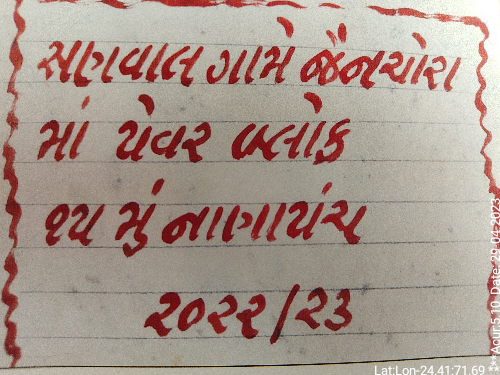 સણવાલ ગામે જૈનચોરા
માં પેવર બ્લોક
૧૫ મું નાણાપંચ
૨૦૨૨/૨૩
Lat:Lon-24.41:71.69
**Acur:5.10 Date: 29-04-2023